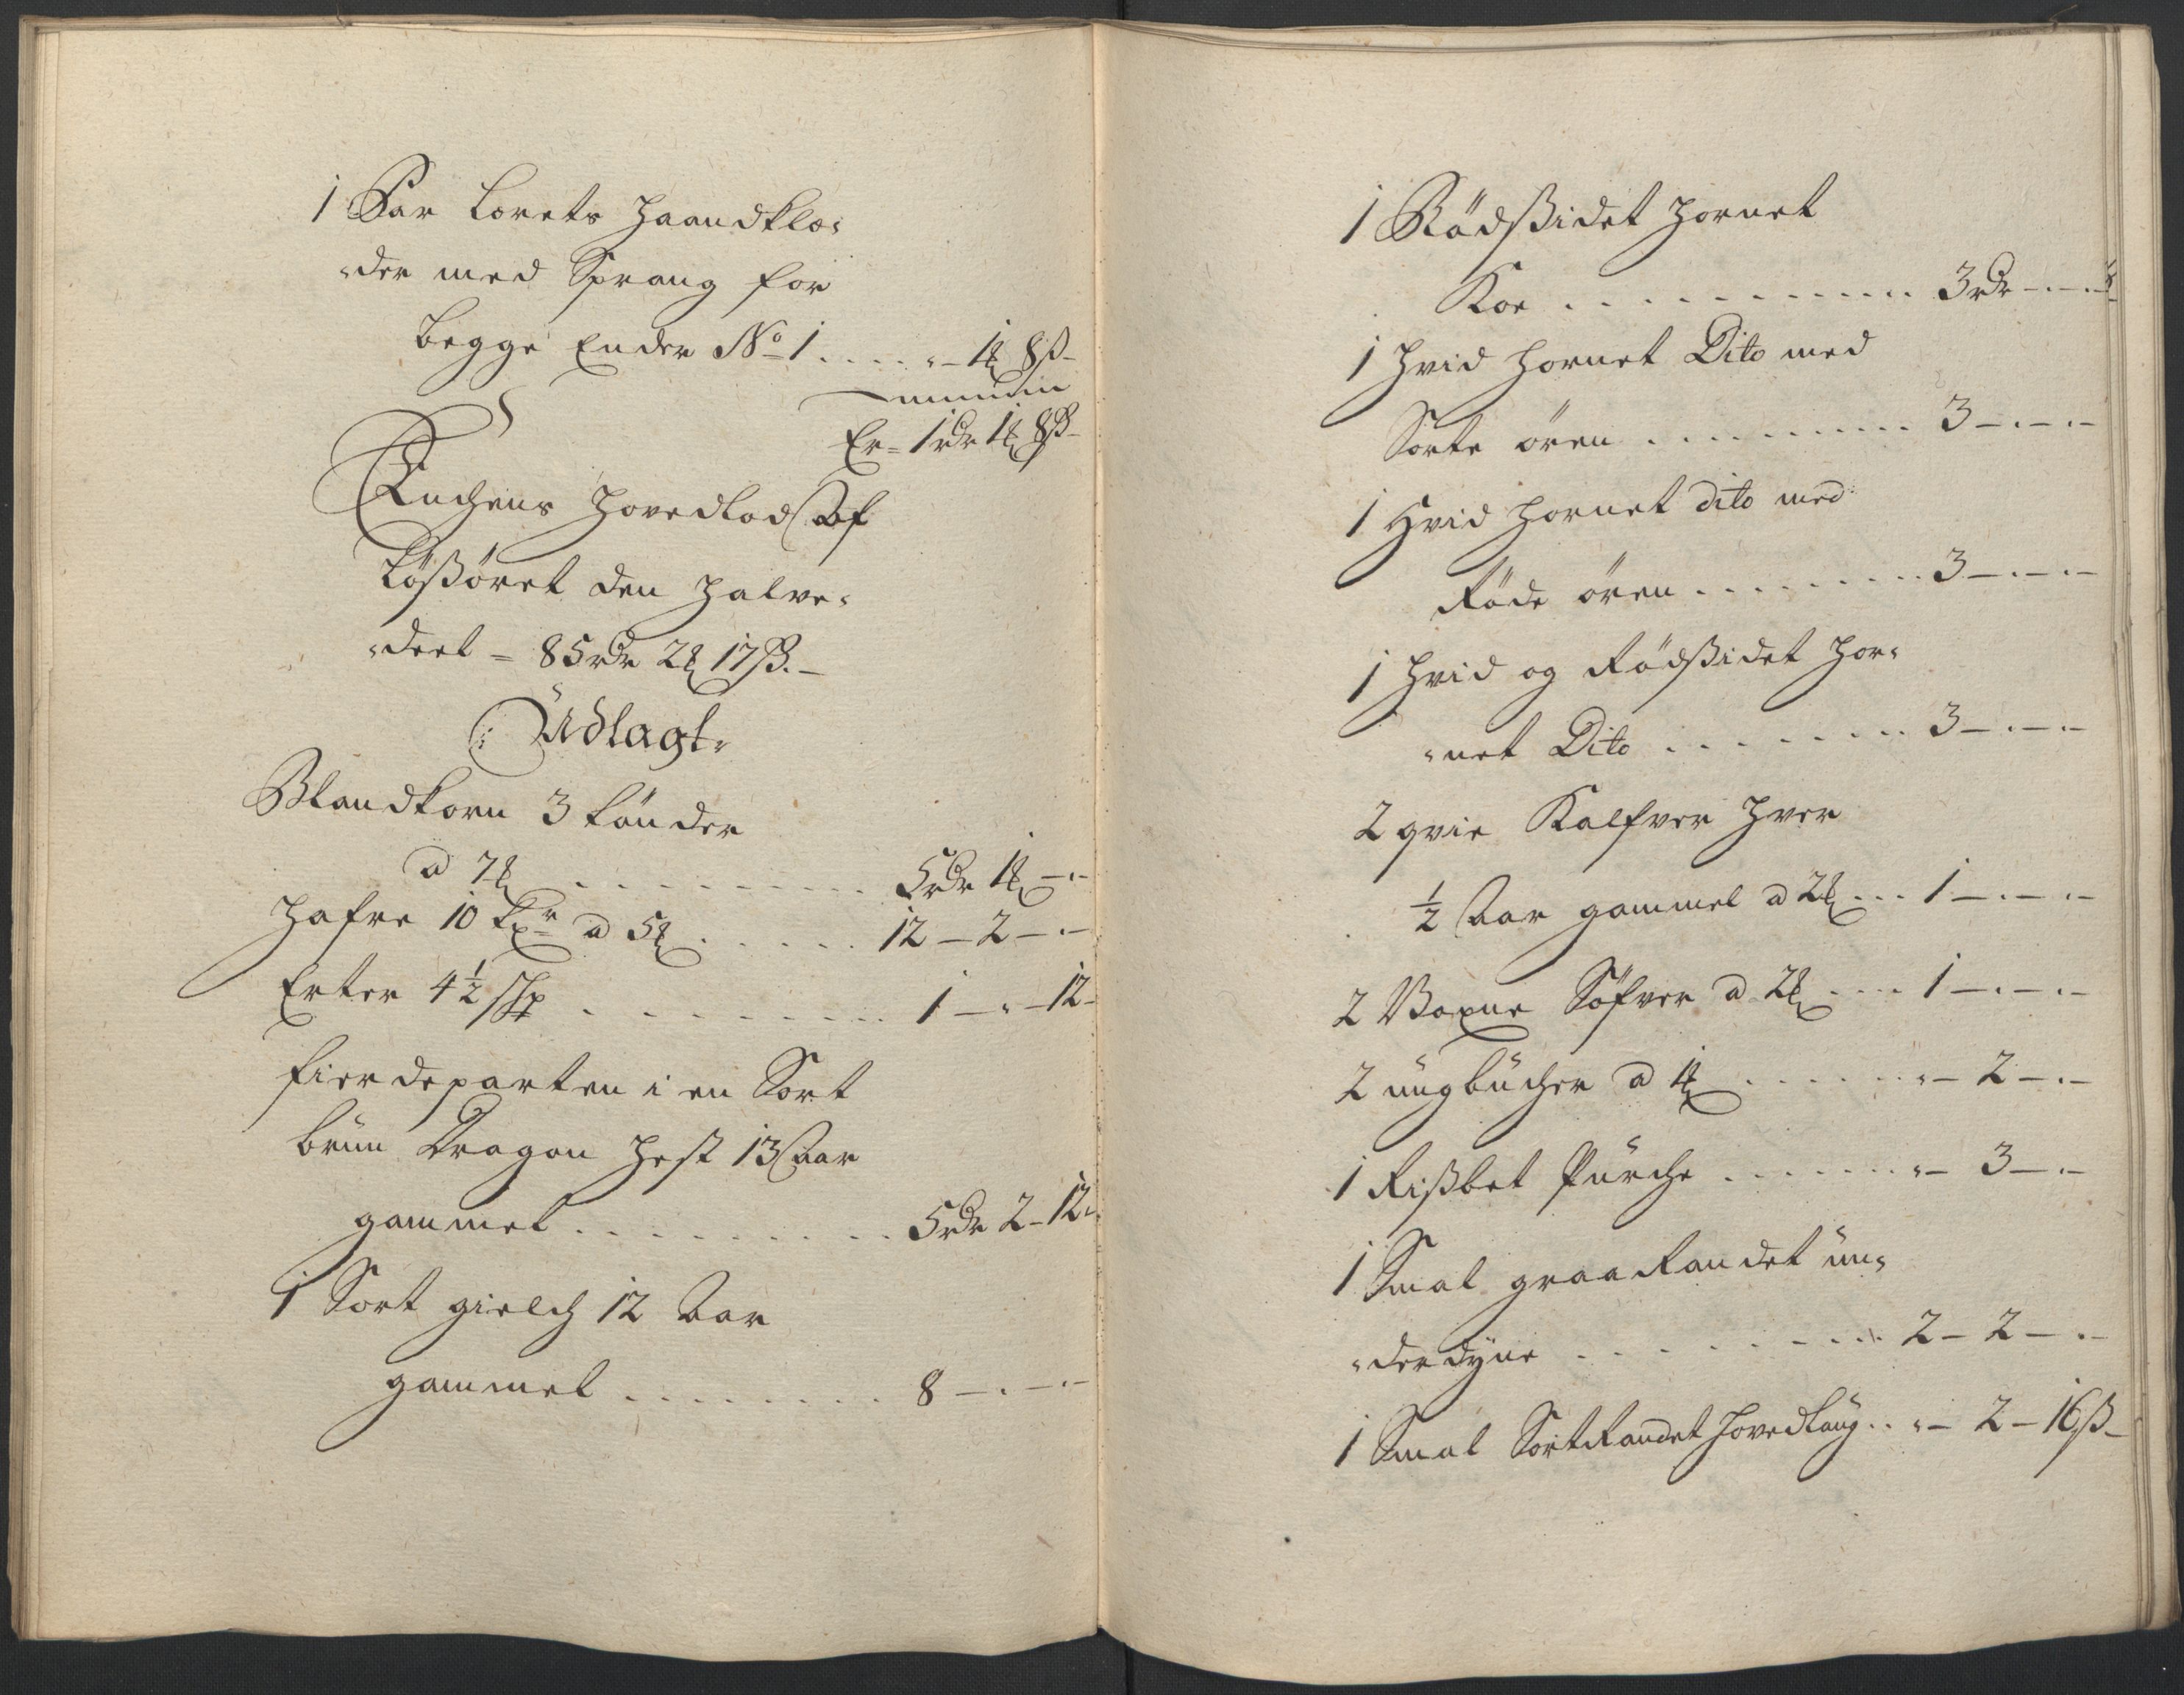 1 Par Lerets Haandklæ-
-der med Sprang for
begge Ender No 1 .... "- 1 8 ß-
Er= 1 rdr 1 8 ß-
Enchens Hovedlod Af
Lößöret den Halve-
-deel = 85 rdr 2 17 ß.-
Udlagt.
Blandkorn 3 tönder
a 7 .......... 5 rdr 1 -"-
Hafre 10 tr a 5 ...... 12 - 2 -"-
Erter 4 1/2 skp ........ 1 -"- 12-
fierdeparten i en Sort
brun Dragon Hest 13 Aar
gammel ......... 5 rdr 2 - 12-
1 Sort gielch 12 Aar
gammel ........ 8 -"-"-
1 Rödßidet Hornet
Koe ........... 3 rdr -"-"-
1 Hvid Hornet Dito med
Sorte ören ......... 3 -"-"-
1 Hvid Hornet dito med
Röde ören ........ 3 -"-"-
1 Hvid og Rödßidet Hor-
-net Dito ........ 3 -"-"-
2 qvie Kalfver Hver
1/2 Aar gammel a 2 ... 1 -"-"-
2 Voxne Söfver a 2 .... 1 -"-"-
2 üngbücher a 1 ....... "- 2 -"-
1 Rißbet Pürche ....... "- 3 -"-
1 Smal graaRandet ün-
-derdyne ......... 2 - 2 -"-
1 Smal SortRandet Hovedlaug .. "- 2 - 16 ß-